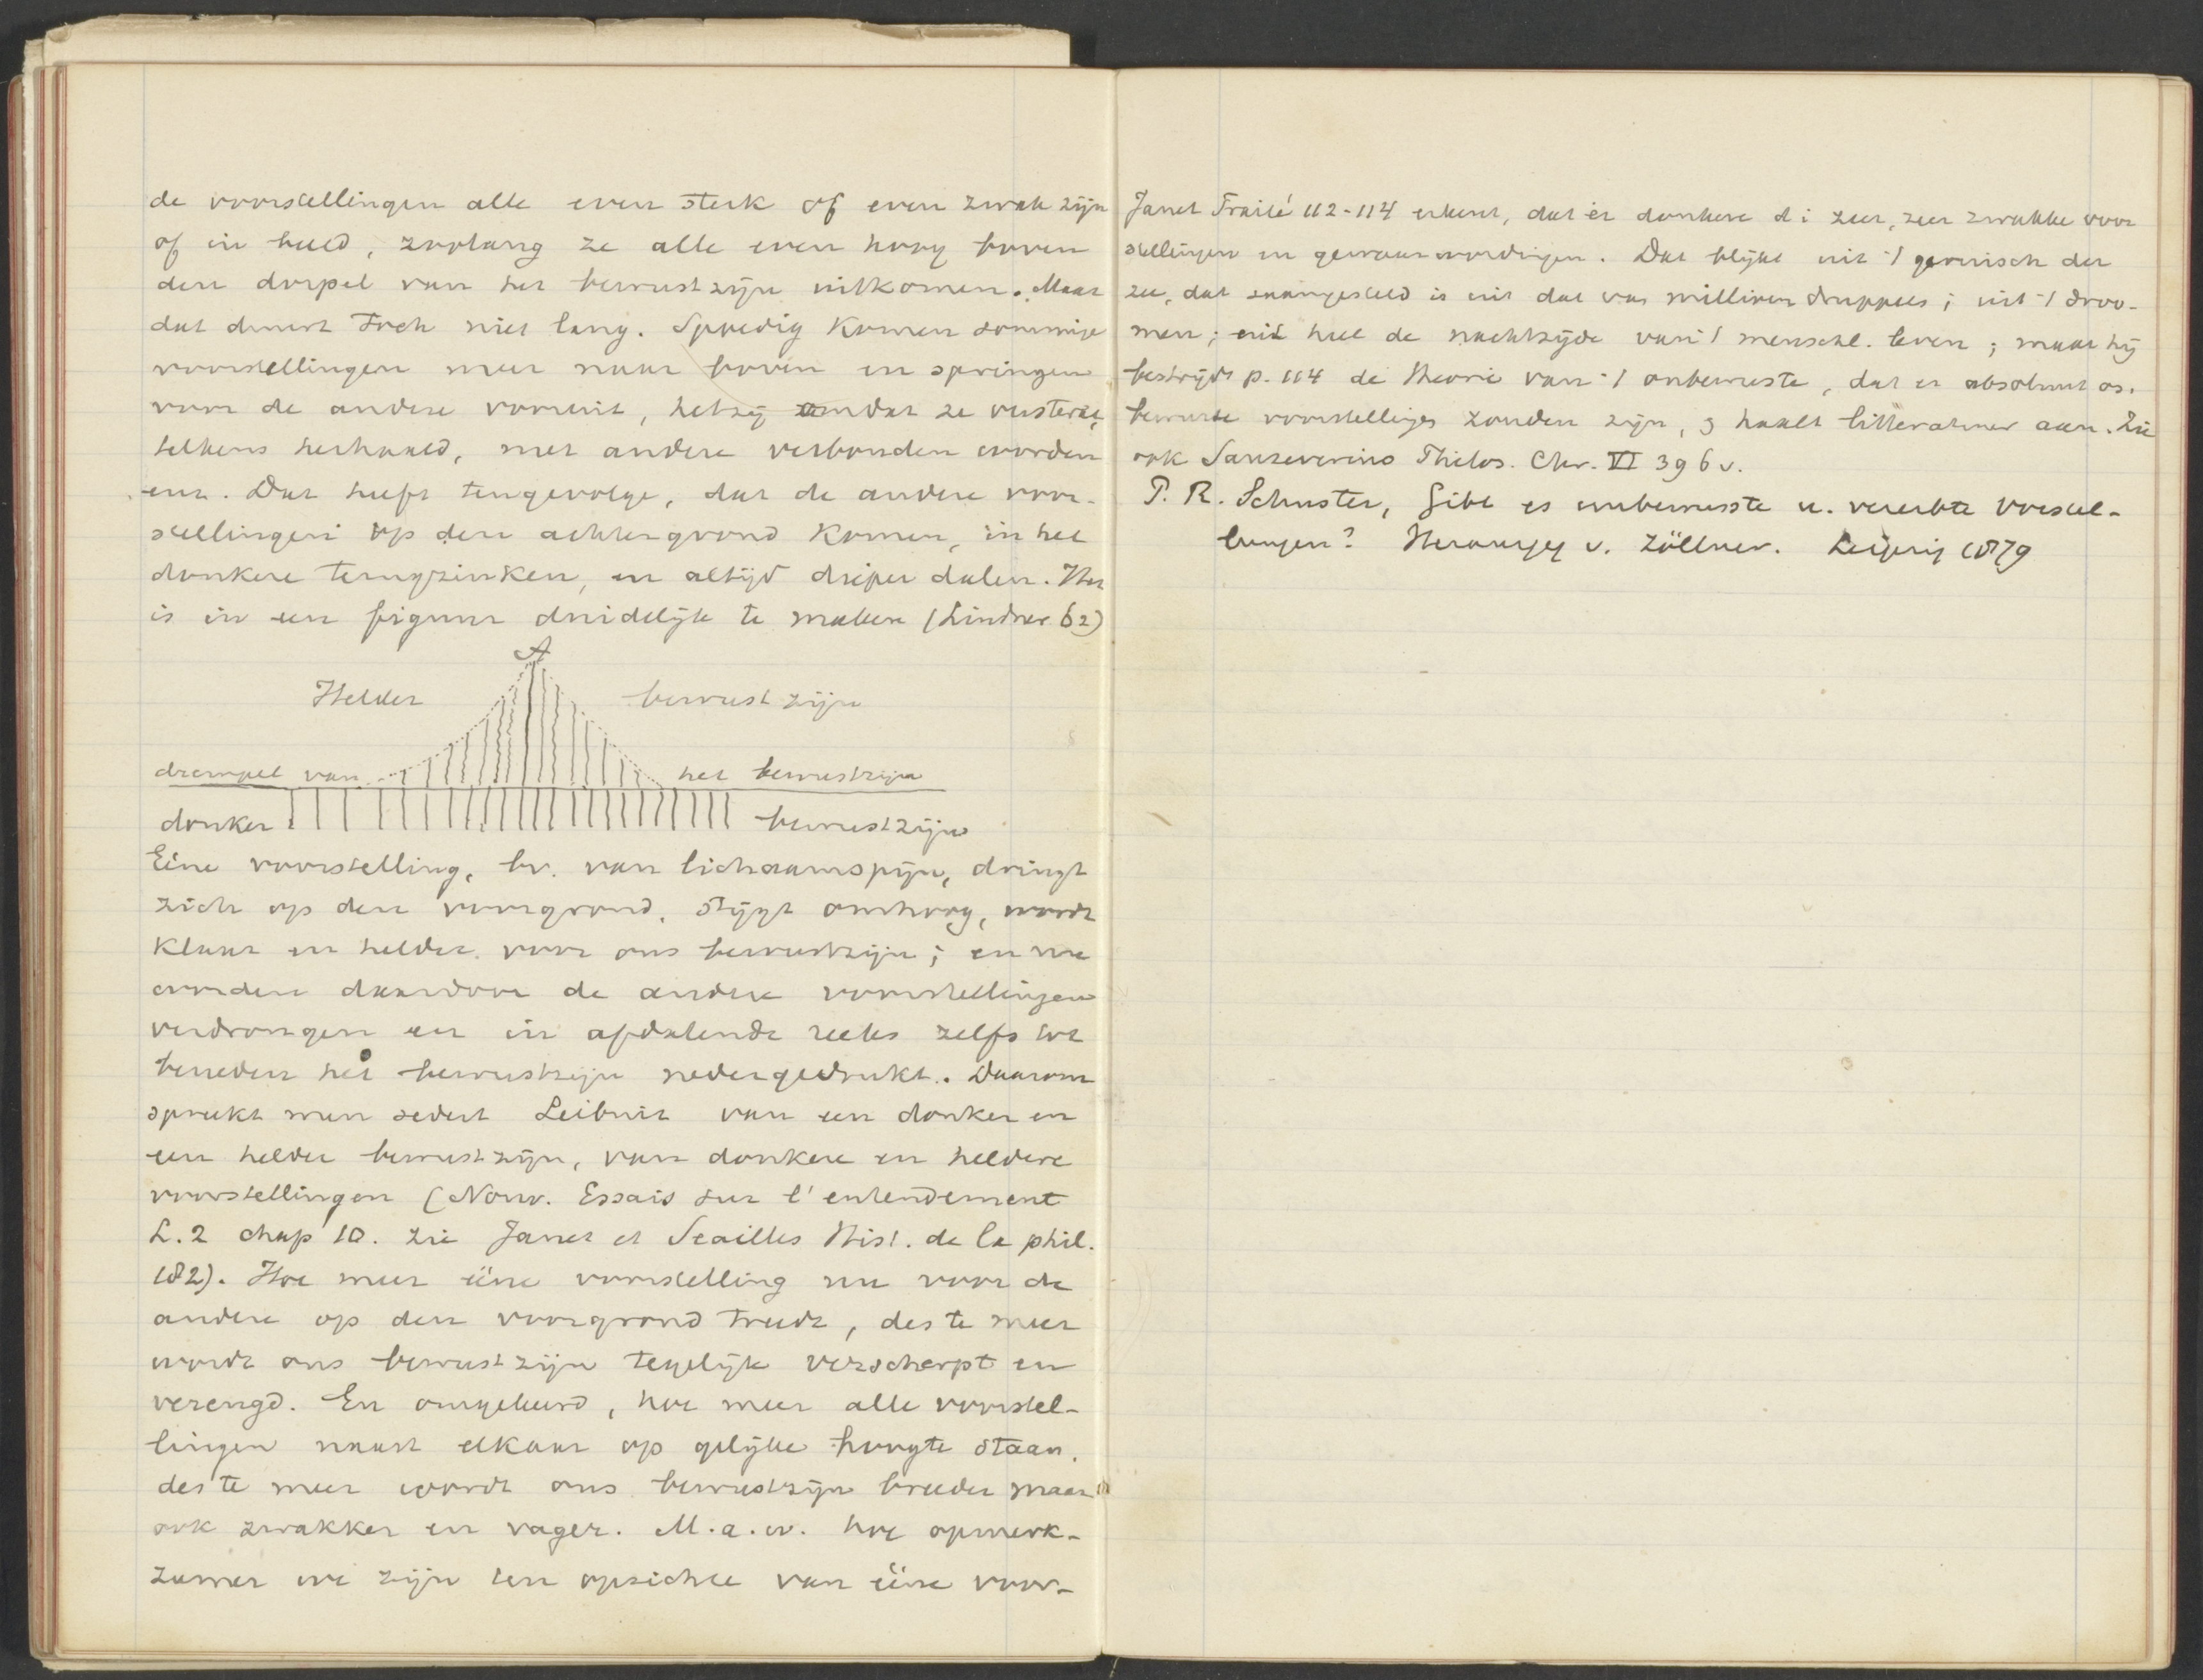 de voorstellingen alle even sterk of even zwak zijn
of in beeld, zoolang ze alle even hoog boven
den dorpel van het bewustzijn uitkomen. Maar
dat duurt toch niet lang. Spoedig komen sommige
voorstellingen meer naar boven en springen
voor de andere vooruit, hetzij omdat ze versterkt,
telkens herhaald, met andere verbonden worden
enz. Dat heeft tengevolge, dat de andere voor-
stellingen op den achtergrond komen, in het
donkere terugzinken, en altijd dieper dalen. Het
is in een figuur duidelijk te maken (Lindner 62)
A
Helder bewustzijn
drempel van het bewustzijn
donker bewustzijn
Eéne voorstelling, bv. van lichaamspijn, dringt
zich op den voorgrond, stijgt omhoog, wordt
klaar en helder voor ons bewustzijn; en nu
worden daardoor de andere voorstellingen
verdrongen en in afdalende reeks zelfs tot
beneden het bewustzijn nedergedrukt. Daarom
spreekt men sedert Leibniz van een donker en
een helder bewustzijn, van donkere en heldere
voorstellingen (Nouv. Essais sur l'entendement
L. 2 chap 10. zie Janet et Seailles Hist. de la phil.
182). Hoe meer ééne voorstelling nu voor de
andere op den voorgrond treedt, des te meer
wordt ons bewustzijn tegelijk verscherpt en
verengd. En omgekeerd, hoe meer alle voorstel-
lingen naast elkaar op gelijke hoogte staan,
des te meer wordt ons bewustzijn breeder maar
ook zwakker en vager. M.a.w. hoe opmerk-
zamer we zijn ten opzichte van ééne voor-
Janet Traité 112-114 erkent, dat er donkere d i zeer, zeer zwakke voor
stellingen en gewaarwordingen. Dat blijkt uit 't geruisch der
zee, dat saamgesteld is uit dat van millioen druppels; uit 't droo-
men; uit heel de nachtzijde van 't menschl. leven; maar hij
bestrijdt p. 114 de theorie van 't onbewuste, dat er absoluut on-
bewuste voorstellingen zouden zijn, & haalt litteratuur aan. Zie
ook Sanseverino Philos. Chr. VI 396 v.
P. R. Schuster, Gibt es unbewusste u. vererbte Vorstel-
lungen? v. Zöllner. Leipzig 1879